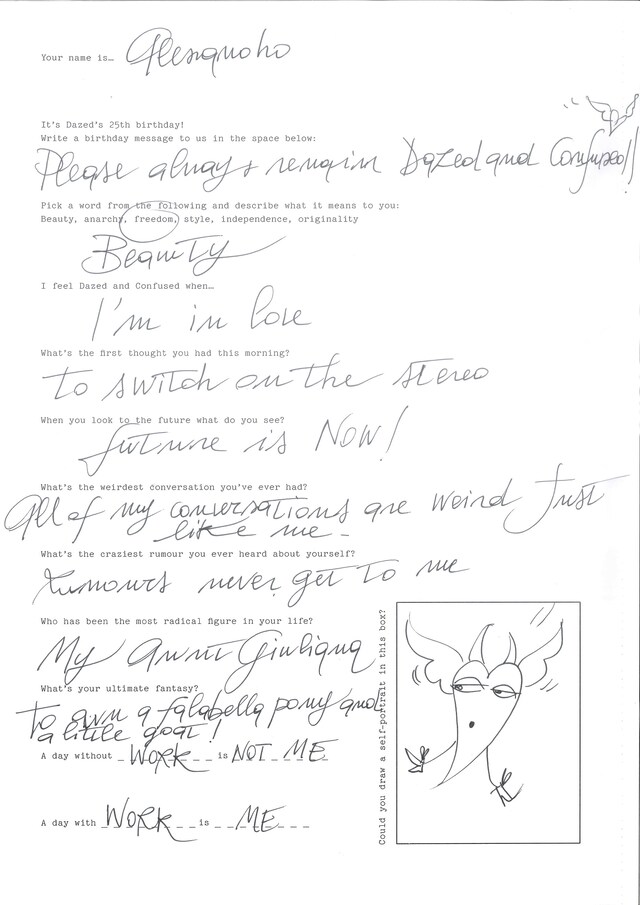 Your name is…
It's Dazed's 25th birthday!
Write a birthday message to us in the space below:
Please always remain Dazed and Confused!!
Pick a word from the following and describe what it means to you:
Beauty, anarchy, freedom, style, independence, originality
Beauty
I feel Dazed and Confused when…
I'm in love
What's the first thought you had this morning?
to switch on the stereo
When you look to the future what do you see?
future is NOW!
What's the weirdest conversation you've ever had?
All of my conversations are weird Just
like me -
What's the craziest rumour you ever heard about yourself?
Rumours never get to me
Who has been the most radical figure in your life?
My Aunt Giuliana
What's your ultimate fantasy?
To own a falabella pony and
a little goat!
A day without _ WORK _ _ is NOT ME
A day with WORK _ _ is _ _ ME _ _ _
Could you draw a self-portrait in this box?